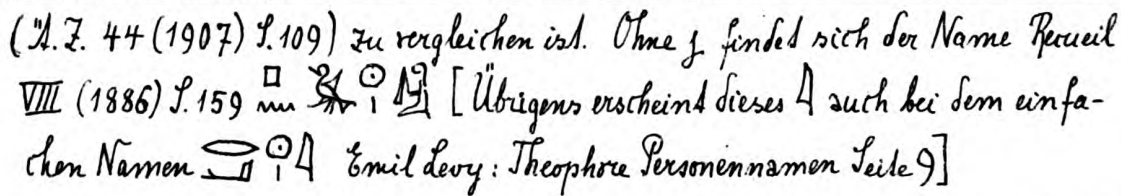 (Ä.Z. 44 (1907) S.109) zu vergleichen ist. Ohne j findet sich der Name Recueil
VIII (1886) S.159 𓊪𓈖 𓇳𓏤 [Übrigens erscheint dieses 𓇋 auch bei dem einfa-
chen Namen 𓂋𓂝𓇳𓏤𓇋 Emil Levy: Theophore Personennamen Seite 9]